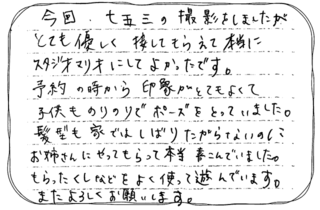 今回、七五三の撮影をしましたが
とても優しく接してもらえて本当に
スタジオマリオにしてよかったです。
予約の時から印象がとてもよくて
子供ものりのりでポーズをとっていました。
髪型も家ではしばりたがらないのに
お姉さんにやってもらって本当喜こんでいました。
もらったくしなどをよく使って遊んでいます。
またよろしくお願いします。